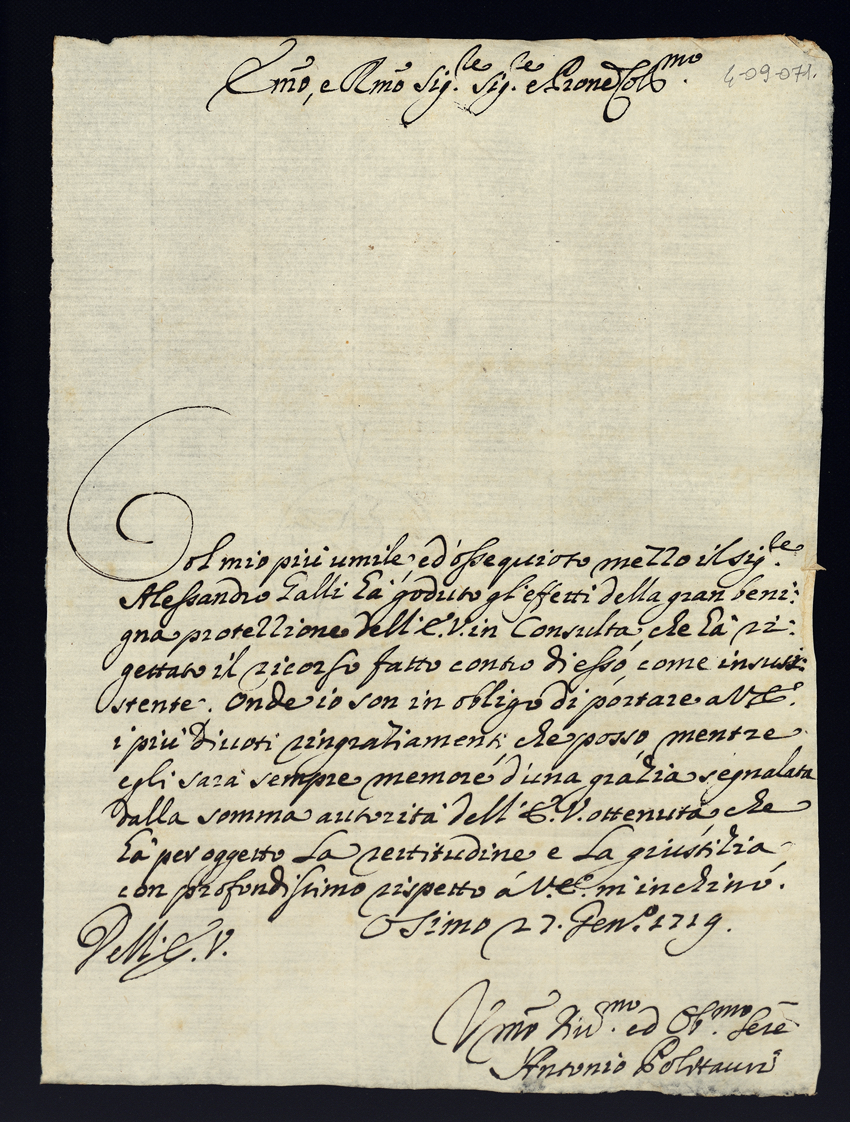 Emo, e Rmo Sig.re Sig.re e Prone Colmo
4-09-071.
Col mio più umile, ed ossequioso mezzo il Sig.re
Alessandro Galli hà goduto gl'effetti della gran beni:
gna protezzione dell'E.V. in Consulta, che hà ri:
gettato il ricorso fatto contro di esso come insusi:
stente. Onde io son in obligo di portare a V.E.
i più divoti ringraziamenti che posso, mentre
egli sarà sempre memore d'una grazia segnalata
dalla somma autorità dell'E.V. ottenuta, che
hà per oggetto la rettitudine e la giustizia
con profondissimo rispetto à V.E. m'inchino.
Osimo 27. Gen.o 1719.
Dell'E.V.
Vmo Div.mo ed Ob.mo Sere
Antonio